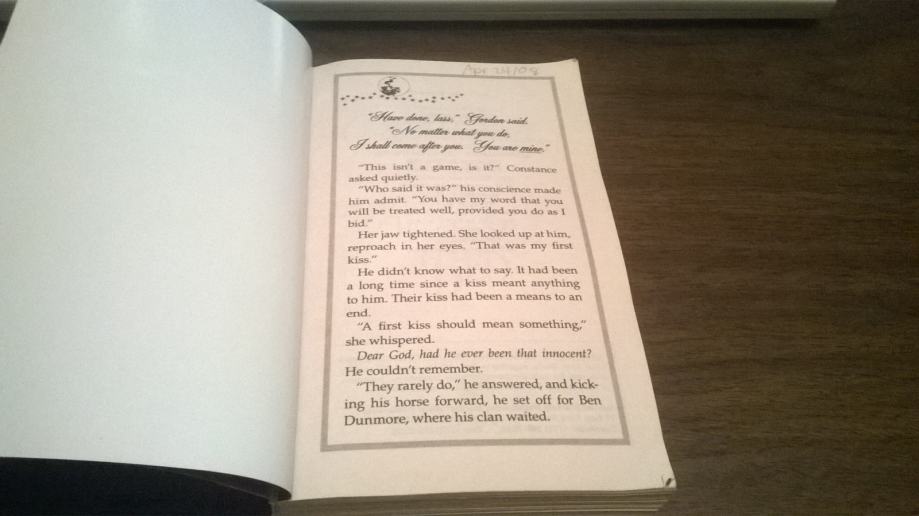 Apr 24/08
"Have done, lass," Gordon said.
"No matter what you do,
I shall come after you. You are mine."
"This isn't a game, is it?" Constance
asked quietly.
"Who said it was?" his conscience made
him admit. "You have my word that you
will be treated well, provided you do as I
bid."
Her jaw tightened. She looked up at him,
reproach in her eyes. "That was my first
kiss."
He didn't know what to say. It had been
a long time since a kiss meant anything
to him. Their kiss had been a means to an
end.
"A first kiss should mean something,"
she whispered.
Dear God, had he ever been that innocent?
He couldn't remember.
"They rarely do," he answered, and kick-
ing his horse forward, he set off for Ben
Dunmore, where his clan waited.